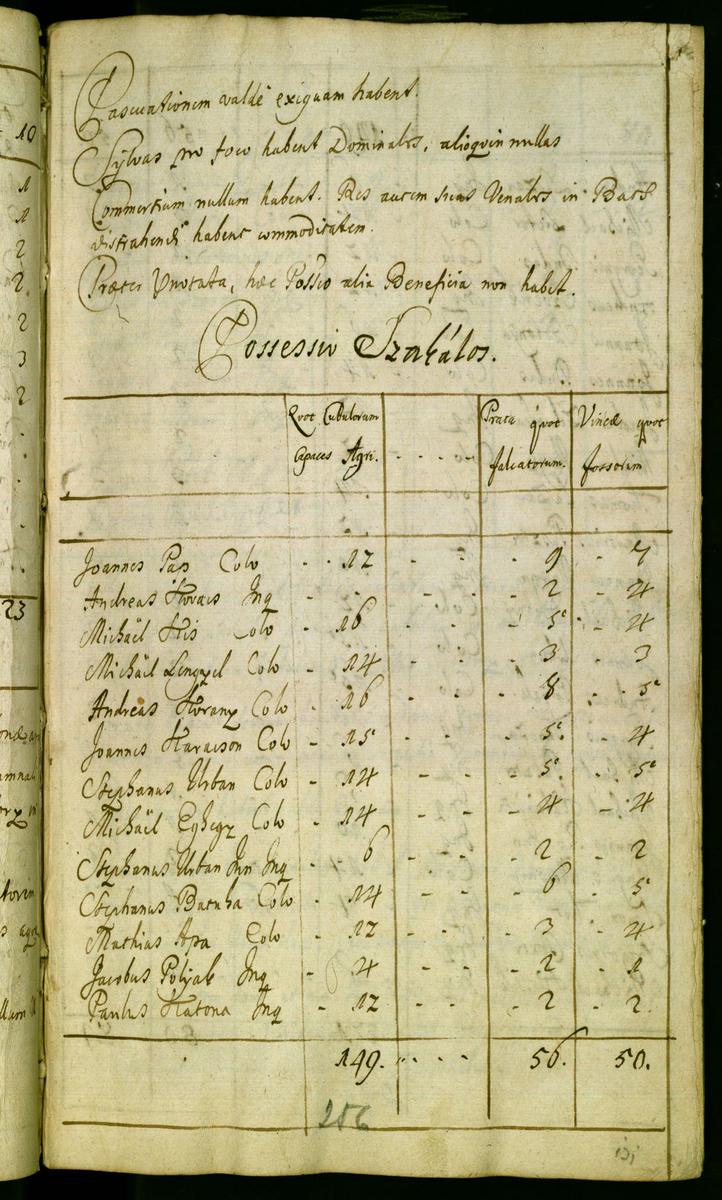 Pascuationem valde exiguam habent.
Sylvas pro foco habent Dominales, alioqvin nullas
Commertium nullum habent. Res autem suas Venales in
distrahendi habent commoditatem.
Præter Vnotata, hæc Possio alia Beneficia non habet.
Possessio Szakálos.
Qvot Cubulorum Prata qvot Vineæ qvot
Capaces Agri. - - - - falcatorum. fossorum
Joannes Pap Colo - - 12 - - - 9 - 7
Andreas Kovacs Inq - - - - - 2 - 4
Michaël Kis Colo - 16 - - - 5 - 4
Michaël Lengyel Colo - 14 - - - 3 - 3
Andreas Colo - 16 - - - 8 - 5
Joannes Colo - 15 - - - 5 - 4
Stephanus Urban Colo - 14 - - - 5 - 5
Michaël Colo - 14 - - - 4 - 4
Stephanus Urban Jun Inq - 6 - - - 2 - 2
Stephanus Colo - 14 - - - 6 - 5
Mathias Apa Colo - 12 - - - 3 - 4
Jacobus Poljak Inq - 4 - - - 2 - 1
Paulus Katona Inq - 12 - - - 2 - 2
149. - - - - 56. 50.
256